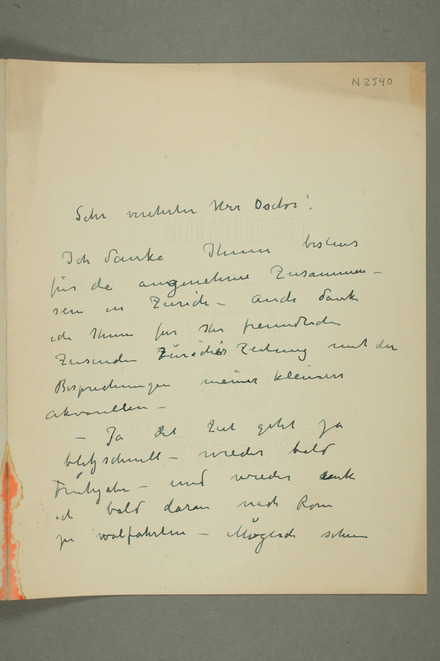 N 2540
Sehr verehrter Herr Doctor!
Ich danke Ihnen bestens
für die angenehme Zusammen-
sein in Zürich – auch danke
ich Ihnen für Ihr freundliches
Zusenden Züricher Zeitung mit den
Besprechungen meiner kleinern
Akvarellen –
– Ja die Zeit geht ja
blitzschnell – wieder bald
Frühjahr – und wieder denke
ich bald daran nach Rom
zu walfahrten – Möglich schon